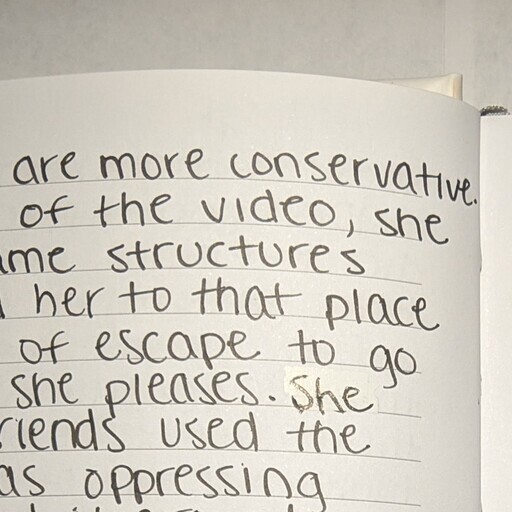 are more conservative.
of the video, she
ame structures
her to that place
of escape to go
she pleases. She
riends used the
as oppressing